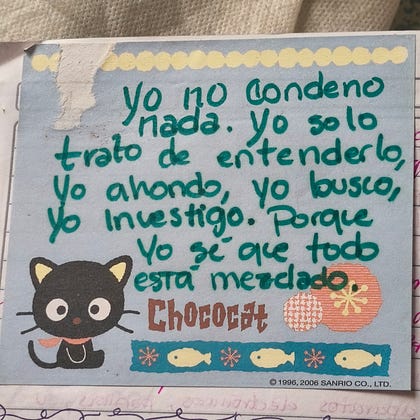 Yo no condeno
nada. Yo solo
trato de entenderlo,
yo ahondo, yo busco,
yo investigo. Porque
Yo sé que todo
está mezclado.
Chococat
© 1996, 2006 SANRIO CO., LTD.